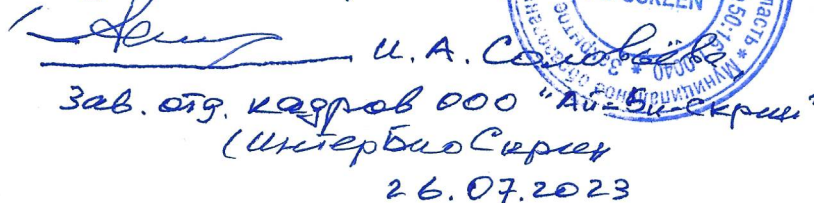 И.А. Соловьёва
Зав. отд. кадров ООО "Ай-Би-Скрин"
(ИнтерБиоСкрин
26.07.2023